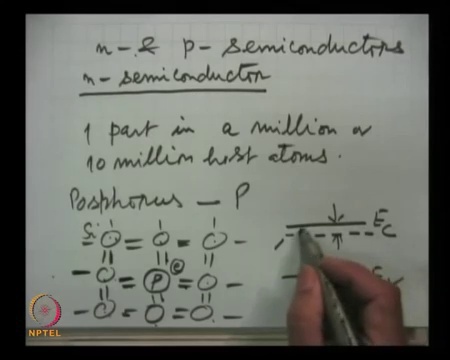 n- & p- semiconductors
n- semiconductor
1 part in a million or
10 million host atoms.
Posphorus - P
Si
P e
Ec
NPTEL